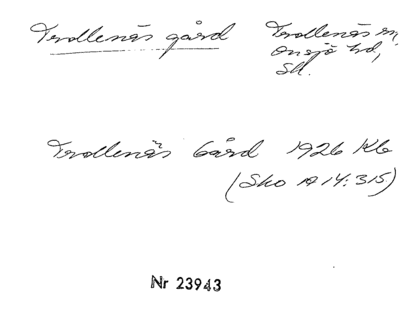 Trollenäs gård
Trollenäs sn,
Onsjö hd,
Sk.
Trollenäs Gård 1926 Kb
(Sko A 14:315)
Nr 23943